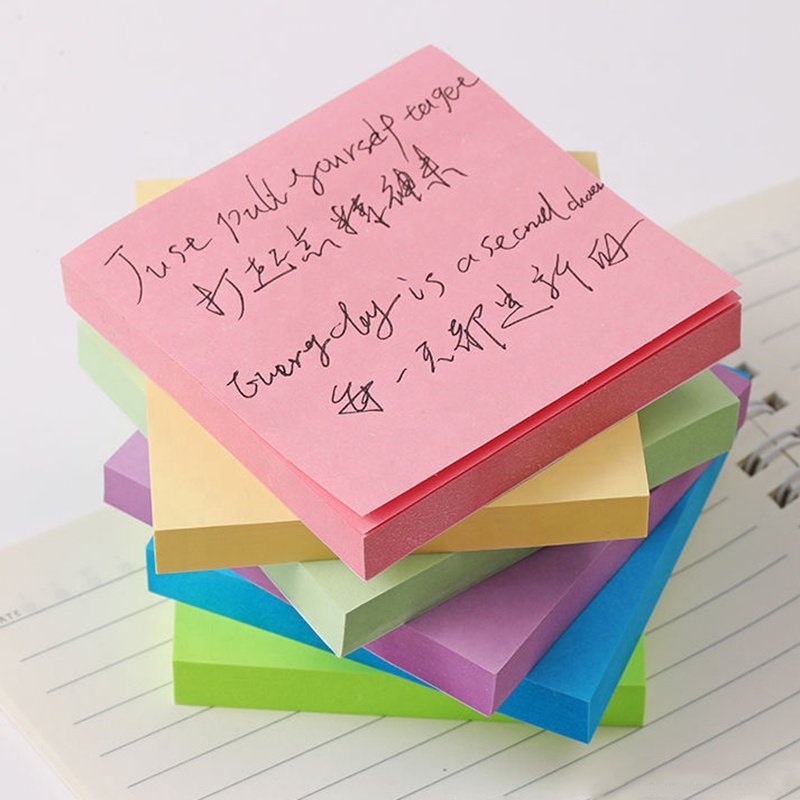 Juse pull yourself togee
打起点精神来
Everyday is a second chan
每一天都是新的
DATE